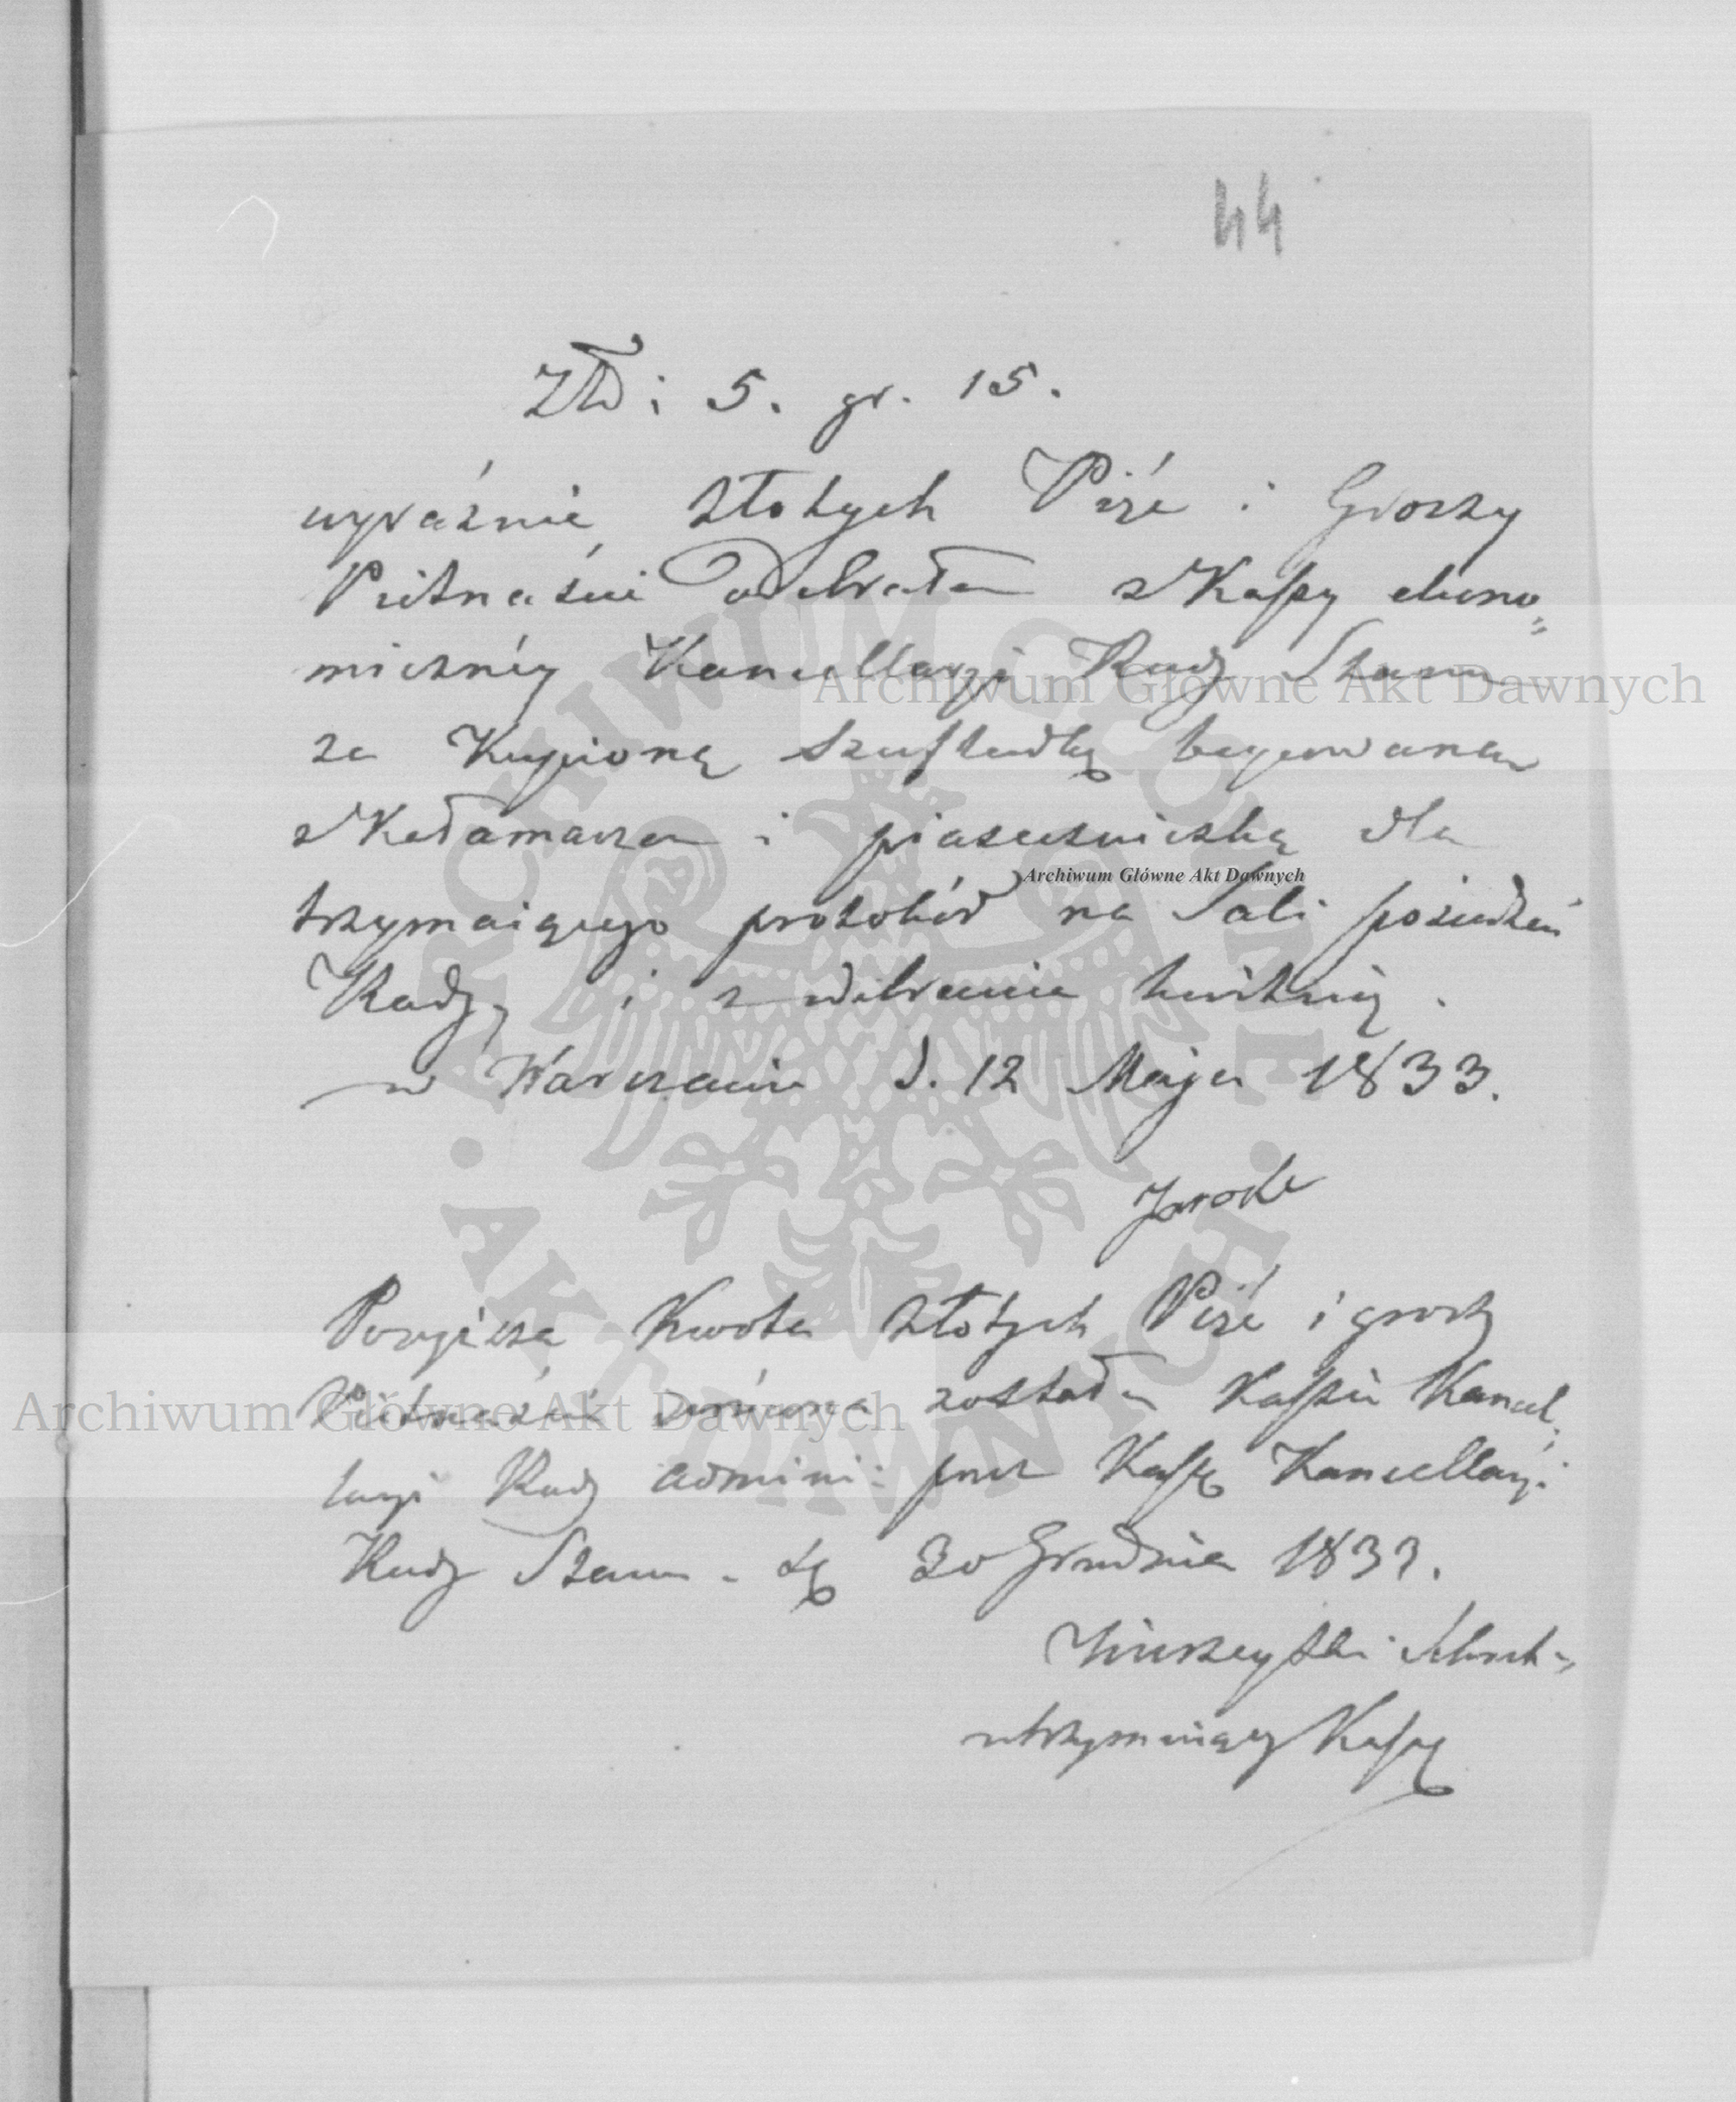 44
Złp: 5. gr. 15.
wyraźnie złotych Pięć i Groszy
Piętnaście odebrałem z Kassy ekono=
micznéy Kancellaryi Rady Stanu
za Kupioną szufladkę
z Kałamarzem i piaseczniczką dla
trzymaiącego protokół na Sali posiedzeń
Rady, i z odebrania kwituię.
w Warszawie d. 12 Maja 1833.
Powyższa Kwota złotych Pięć i groszy
Piętnaście zwrócona została Kassie Kancel=
laryi Rady Admini: przez Kassę Kancellaryi
Rady Stanu - dę 30 Grudnia 1833.
utrzymuiący Kassę
Archiwum Główne Akt Dawnych
Archiwum Główne Akt Dawnych
Archiwum Główne Akt Dawnych
ARCHIWUM GŁÓWNE
AKT DAWNYCH